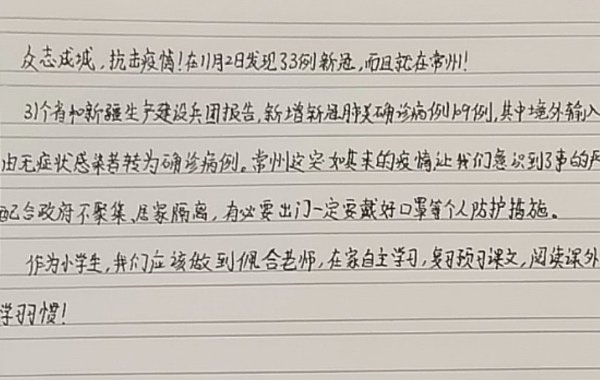 众志成城，抗击疫情！在11月2日发现33例新冠，而且就在常州！
31个省和新疆生产建设兵团报告，新增新冠肺炎确诊病例109例，其中境外输入
由无症状感染者转为确诊病例。常州这突如其来的疫情让我们意识到了事的严
配合政府不聚集、居家隔离，有必要出门一定要戴好口罩等个人防护措施。
作为小学生，我们应该做到佩合老师，在家自主学习，复习预习课文，阅读课外
学习习惯！